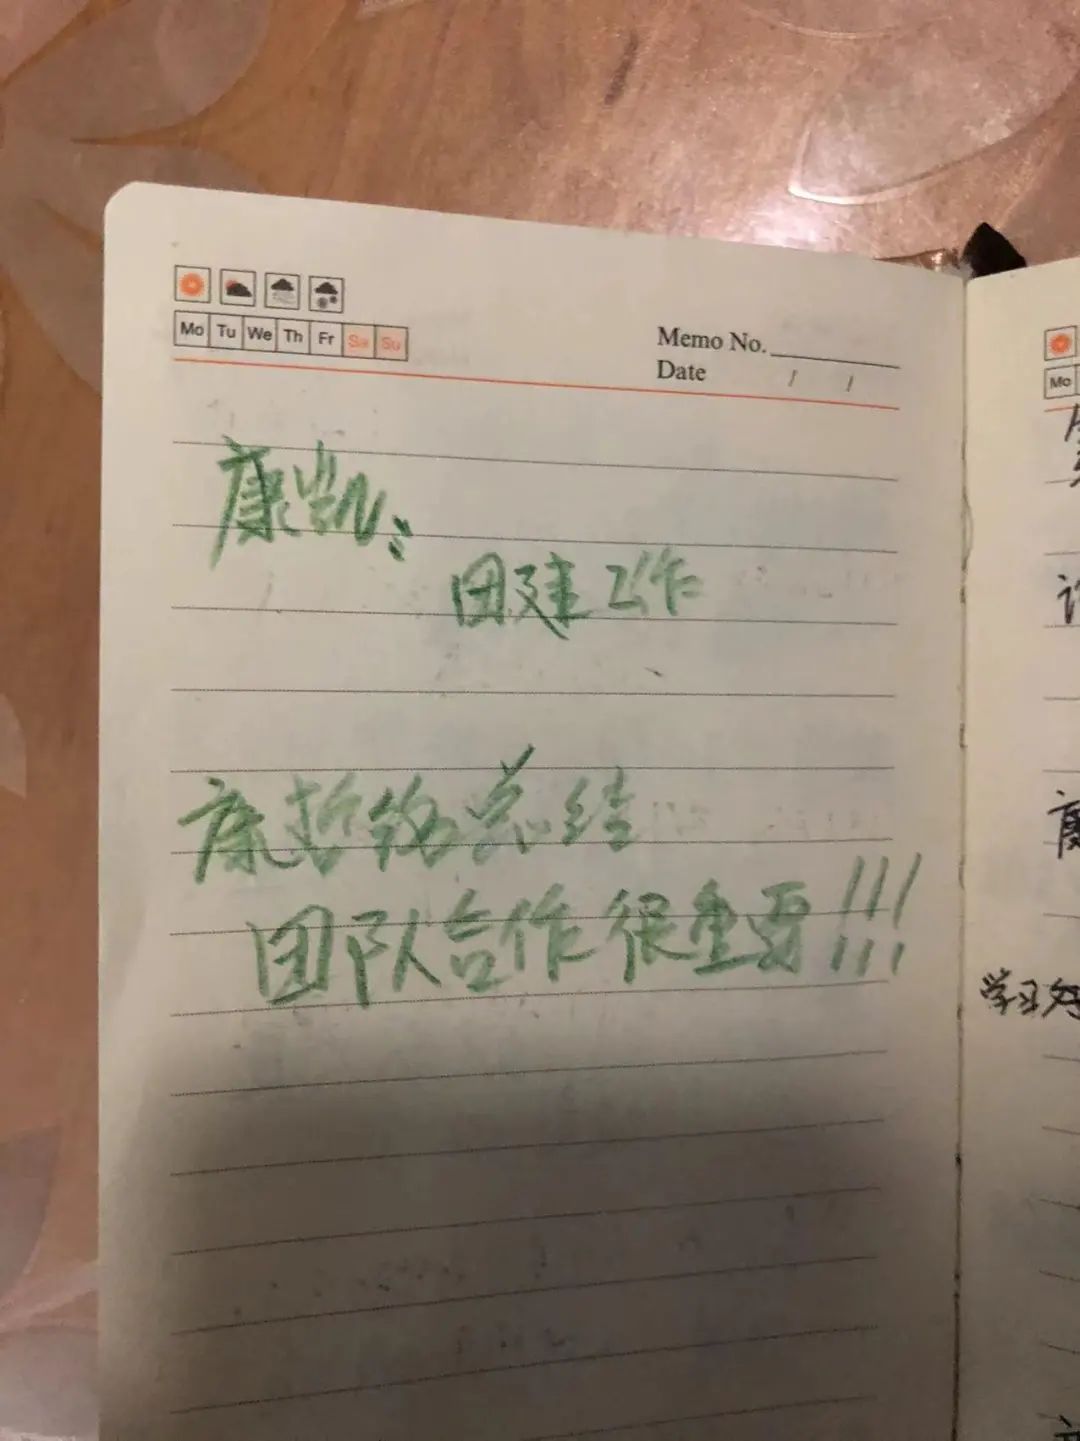 Mo Tu We Th Fr Sa Su
Memo No.
Date / /
康凯:
团建工作
康哲铭总结
团队合作很重要!!!
Mo
学习